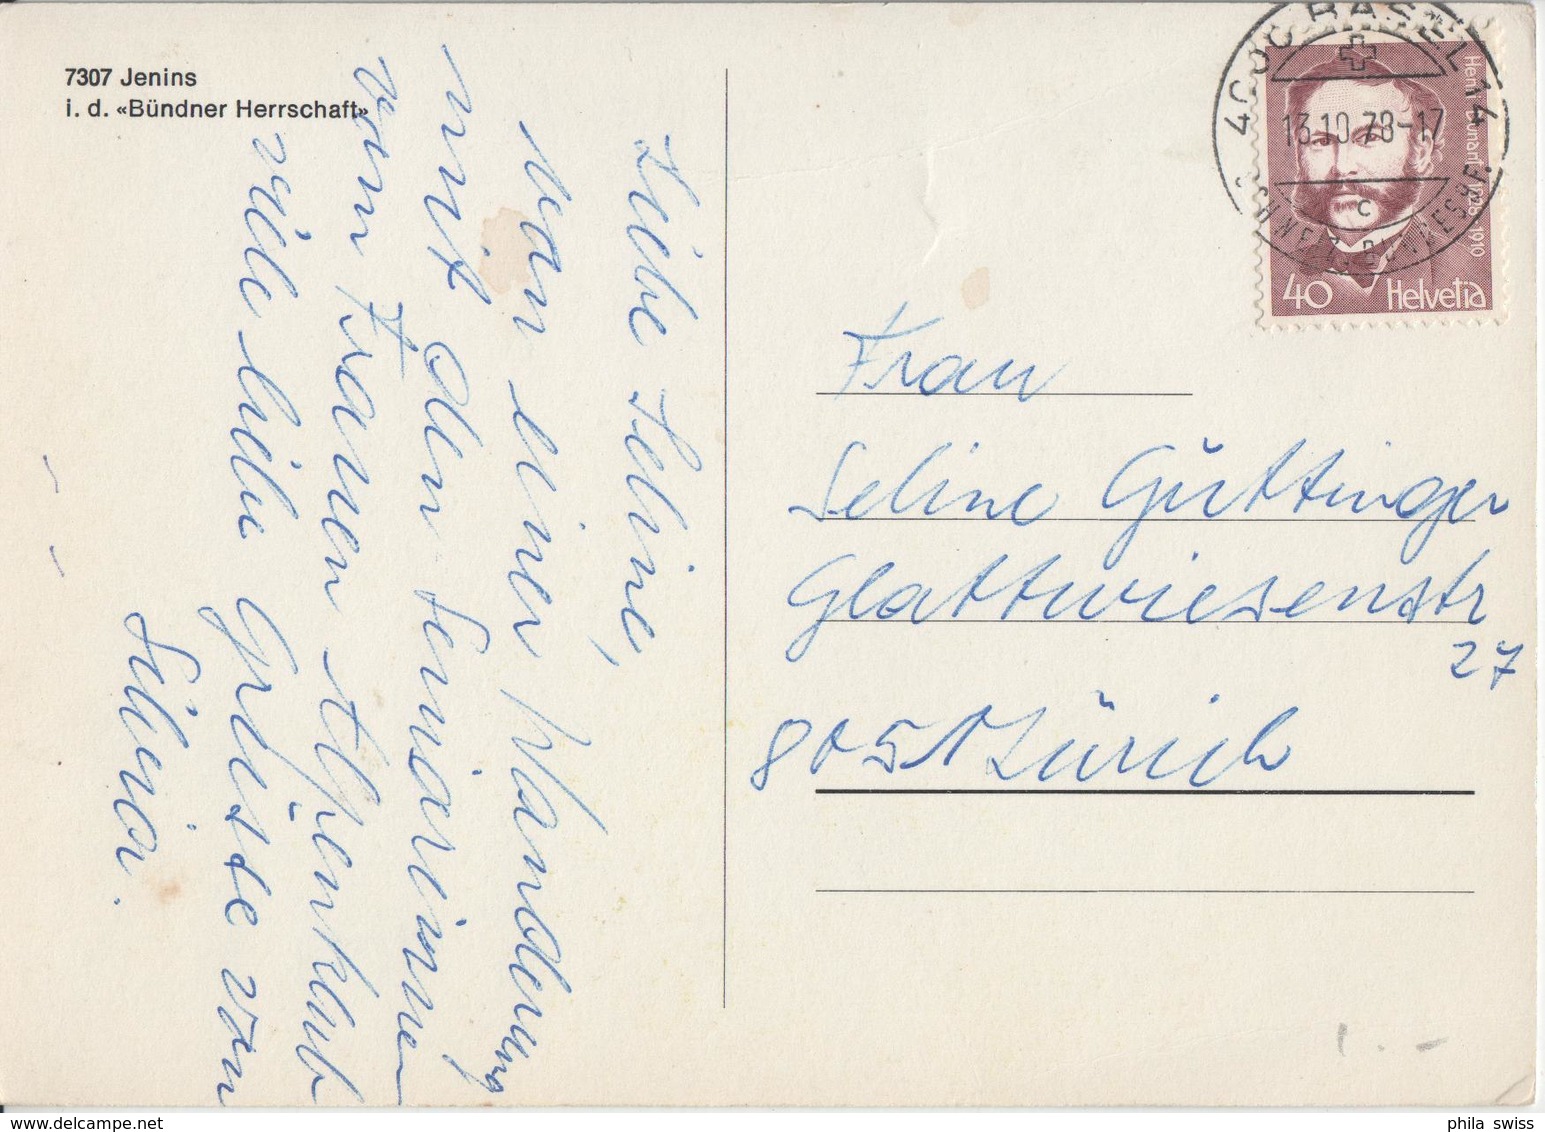 7307 Jenins
i. d. «Bündner Herrschaft»
Liebe Seline,
Von einer Wanderung
mit den Seminarinnen
vom Frauen Alpenklub
viele liebe Grüsse von
Silvia.
4000 BASEL 14
13.10.78-17
C
Henri Dunant 1828-1910
40 Helvetia
Frau
Seline Güttinger
Glattwiesenstr
27
8051 Zürich
1.-
phila swiss